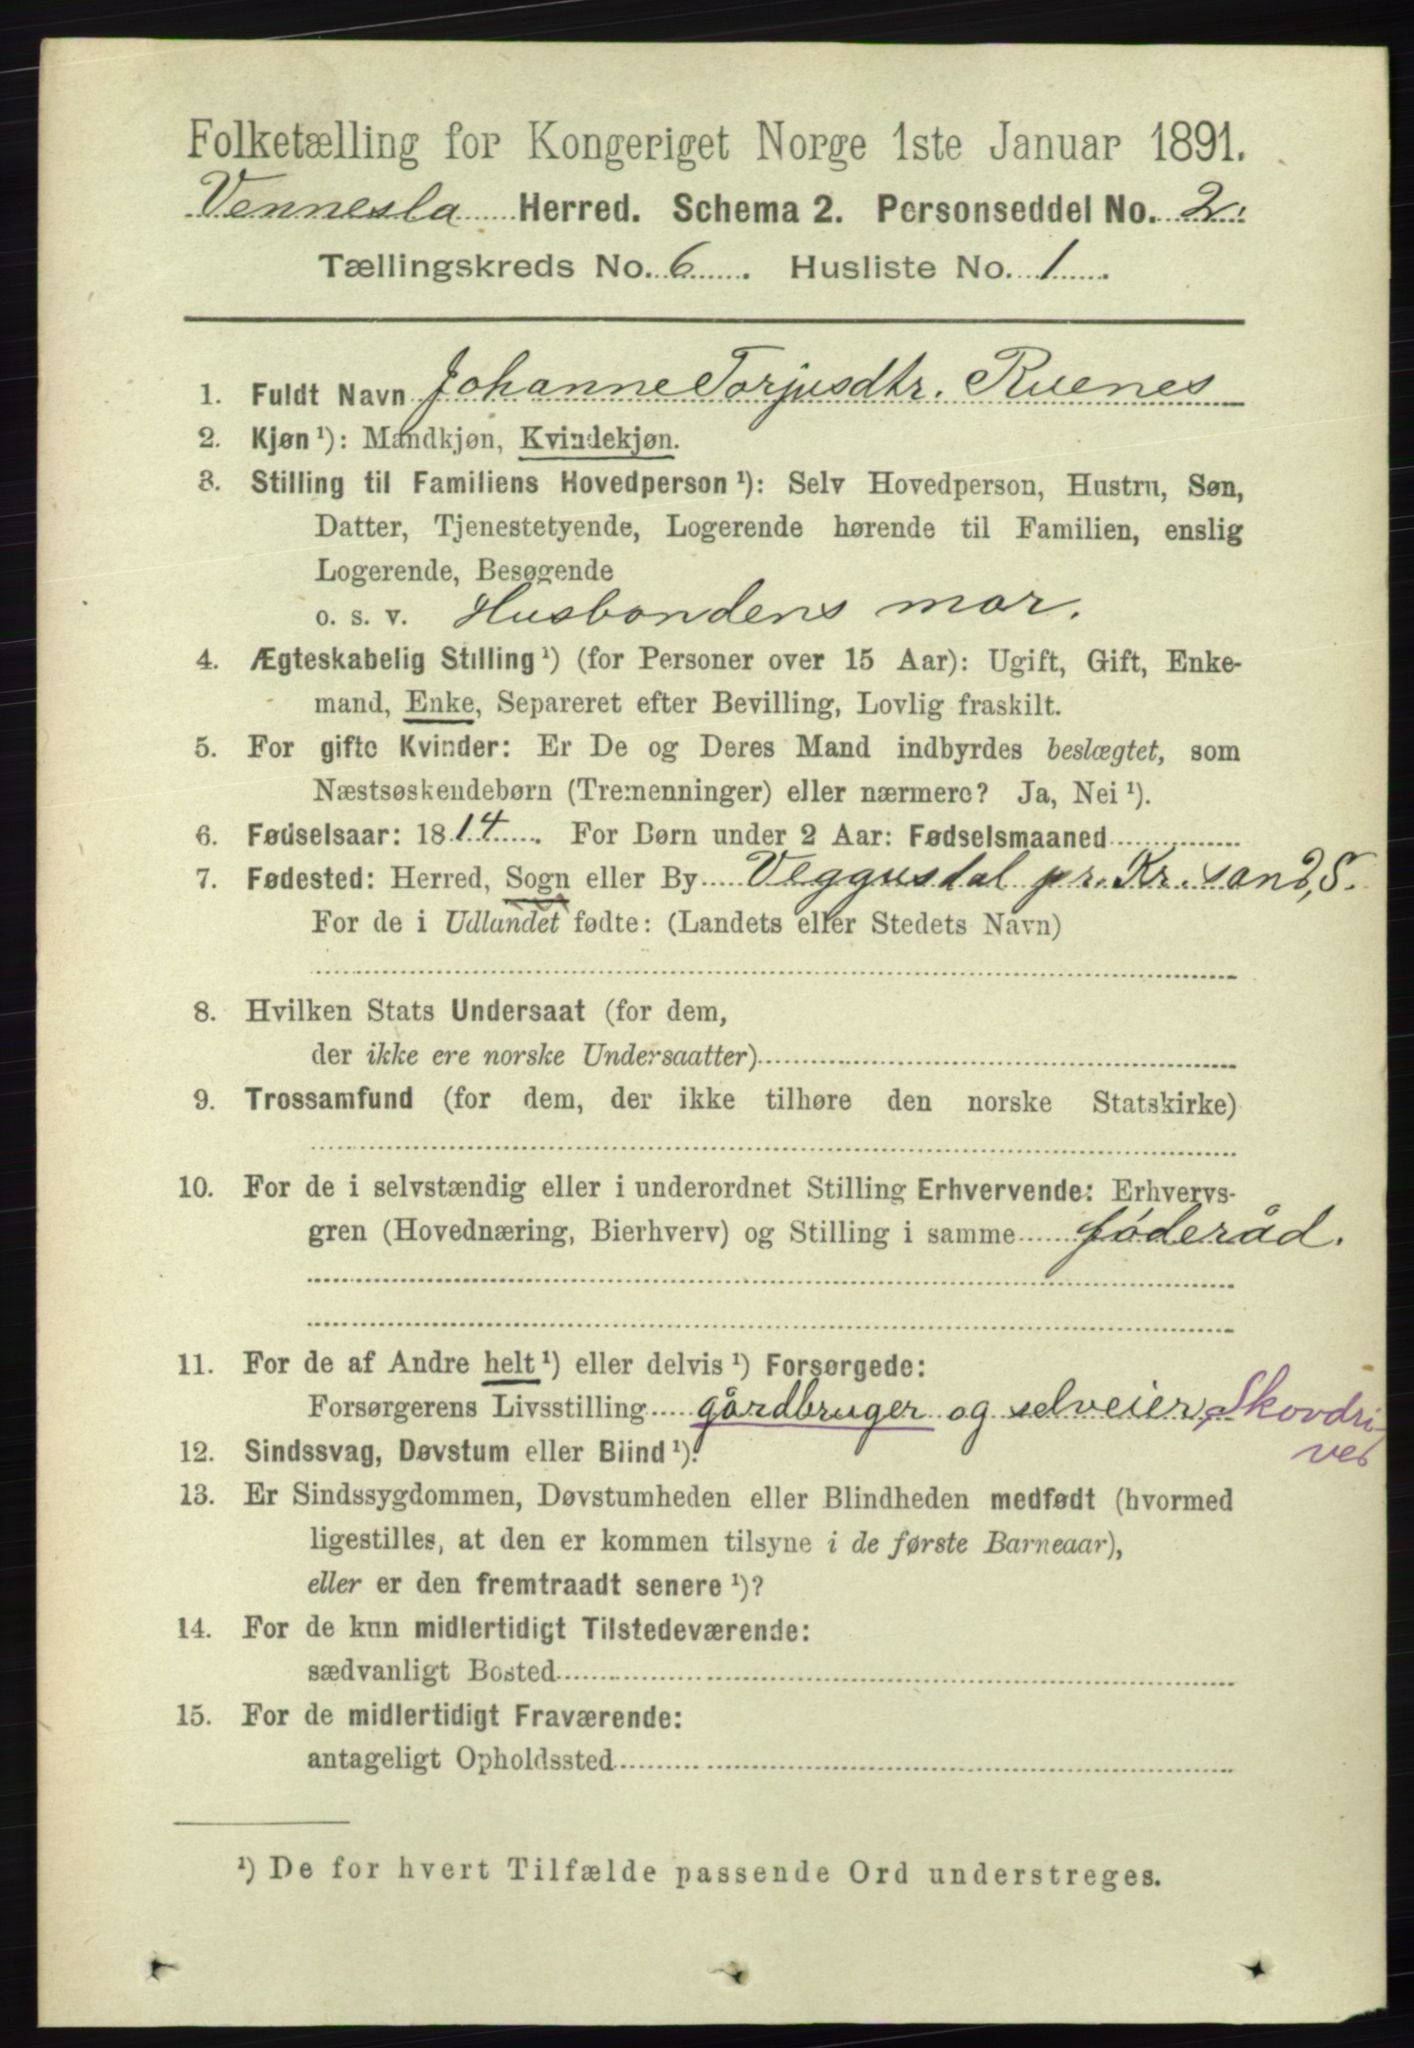 Folketælling for Kongeriget Norge 1ste Januar 1891.
Vennesla Herred. Schema 2. Personseddel No. 2.
Tællingskreds No. 6. Husliste No. 1.
1. Fuldt Navn Johanne Torjusdtr. Ruenes
2. Kjøn ¹): Mandkjøn, Kvindekjøn.
3. Stilling til Familiens Hovedperson ¹): Selv Hovedperson, Hustru, Søn,
Datter, Tjenestetyende, Logerende hørende til Familien, enslig
Logerende, Besøgende
o. s. v. Husbondens mor.
4. Ægteskabelig Stilling ¹) (for Personer over 15 Aar): Ugift, Gift, Enke-
mand, Enke, Separeret efter Bevilling, Lovlig fraskilt.
5. For gifte Kvinder: Er De og Deres Mand indbyrdes beslægtet, som
Næstsøskendebørn (Tremenninger) eller nærmere? Ja, Nei ¹).
6. Fødselsaar: 1814. For Børn under 2 Aar: Fødselsmaaned
7. Fødested: Herred, Sogn eller By Veggusdal pr. Kr.sand, S.
For de i Udlandet fødte: (Landets eller Stedets Navn)
8. Hvilken Stats Undersaat (for dem,
der ikke ere norske Undersaatter)
9. Trossamfund (for dem, der ikke tilhøre den norske Statskirke)
10. For de i selvstændig eller i underordnet Stilling Erhvervende: Erhvervs-
gren (Hovednæring, Bierhverv) og Stilling i samme føderåd.
11. For de af Andre helt ¹) eller delvis ¹) Forsørgede:
Forsørgerens Livsstilling gårdbruger og selveier, Skovdri-
ver
12. Sindssvag, Døvstum eller Blind ¹).
13. Er Sindssygdommen, Døvstumheden eller Blindheden medfødt (hvormed
ligestilles, at den er kommen tilsyne i de første Barneaar),
eller er den fremtraadt senere ¹)?
14. For de kun midlertidigt Tilstedeværende:
sædvanligt Bosted
15. For de midlertidigt Fraværende:
antageligt Opholdssted
¹) De for hvert Tilfælde passende Ord understreges.